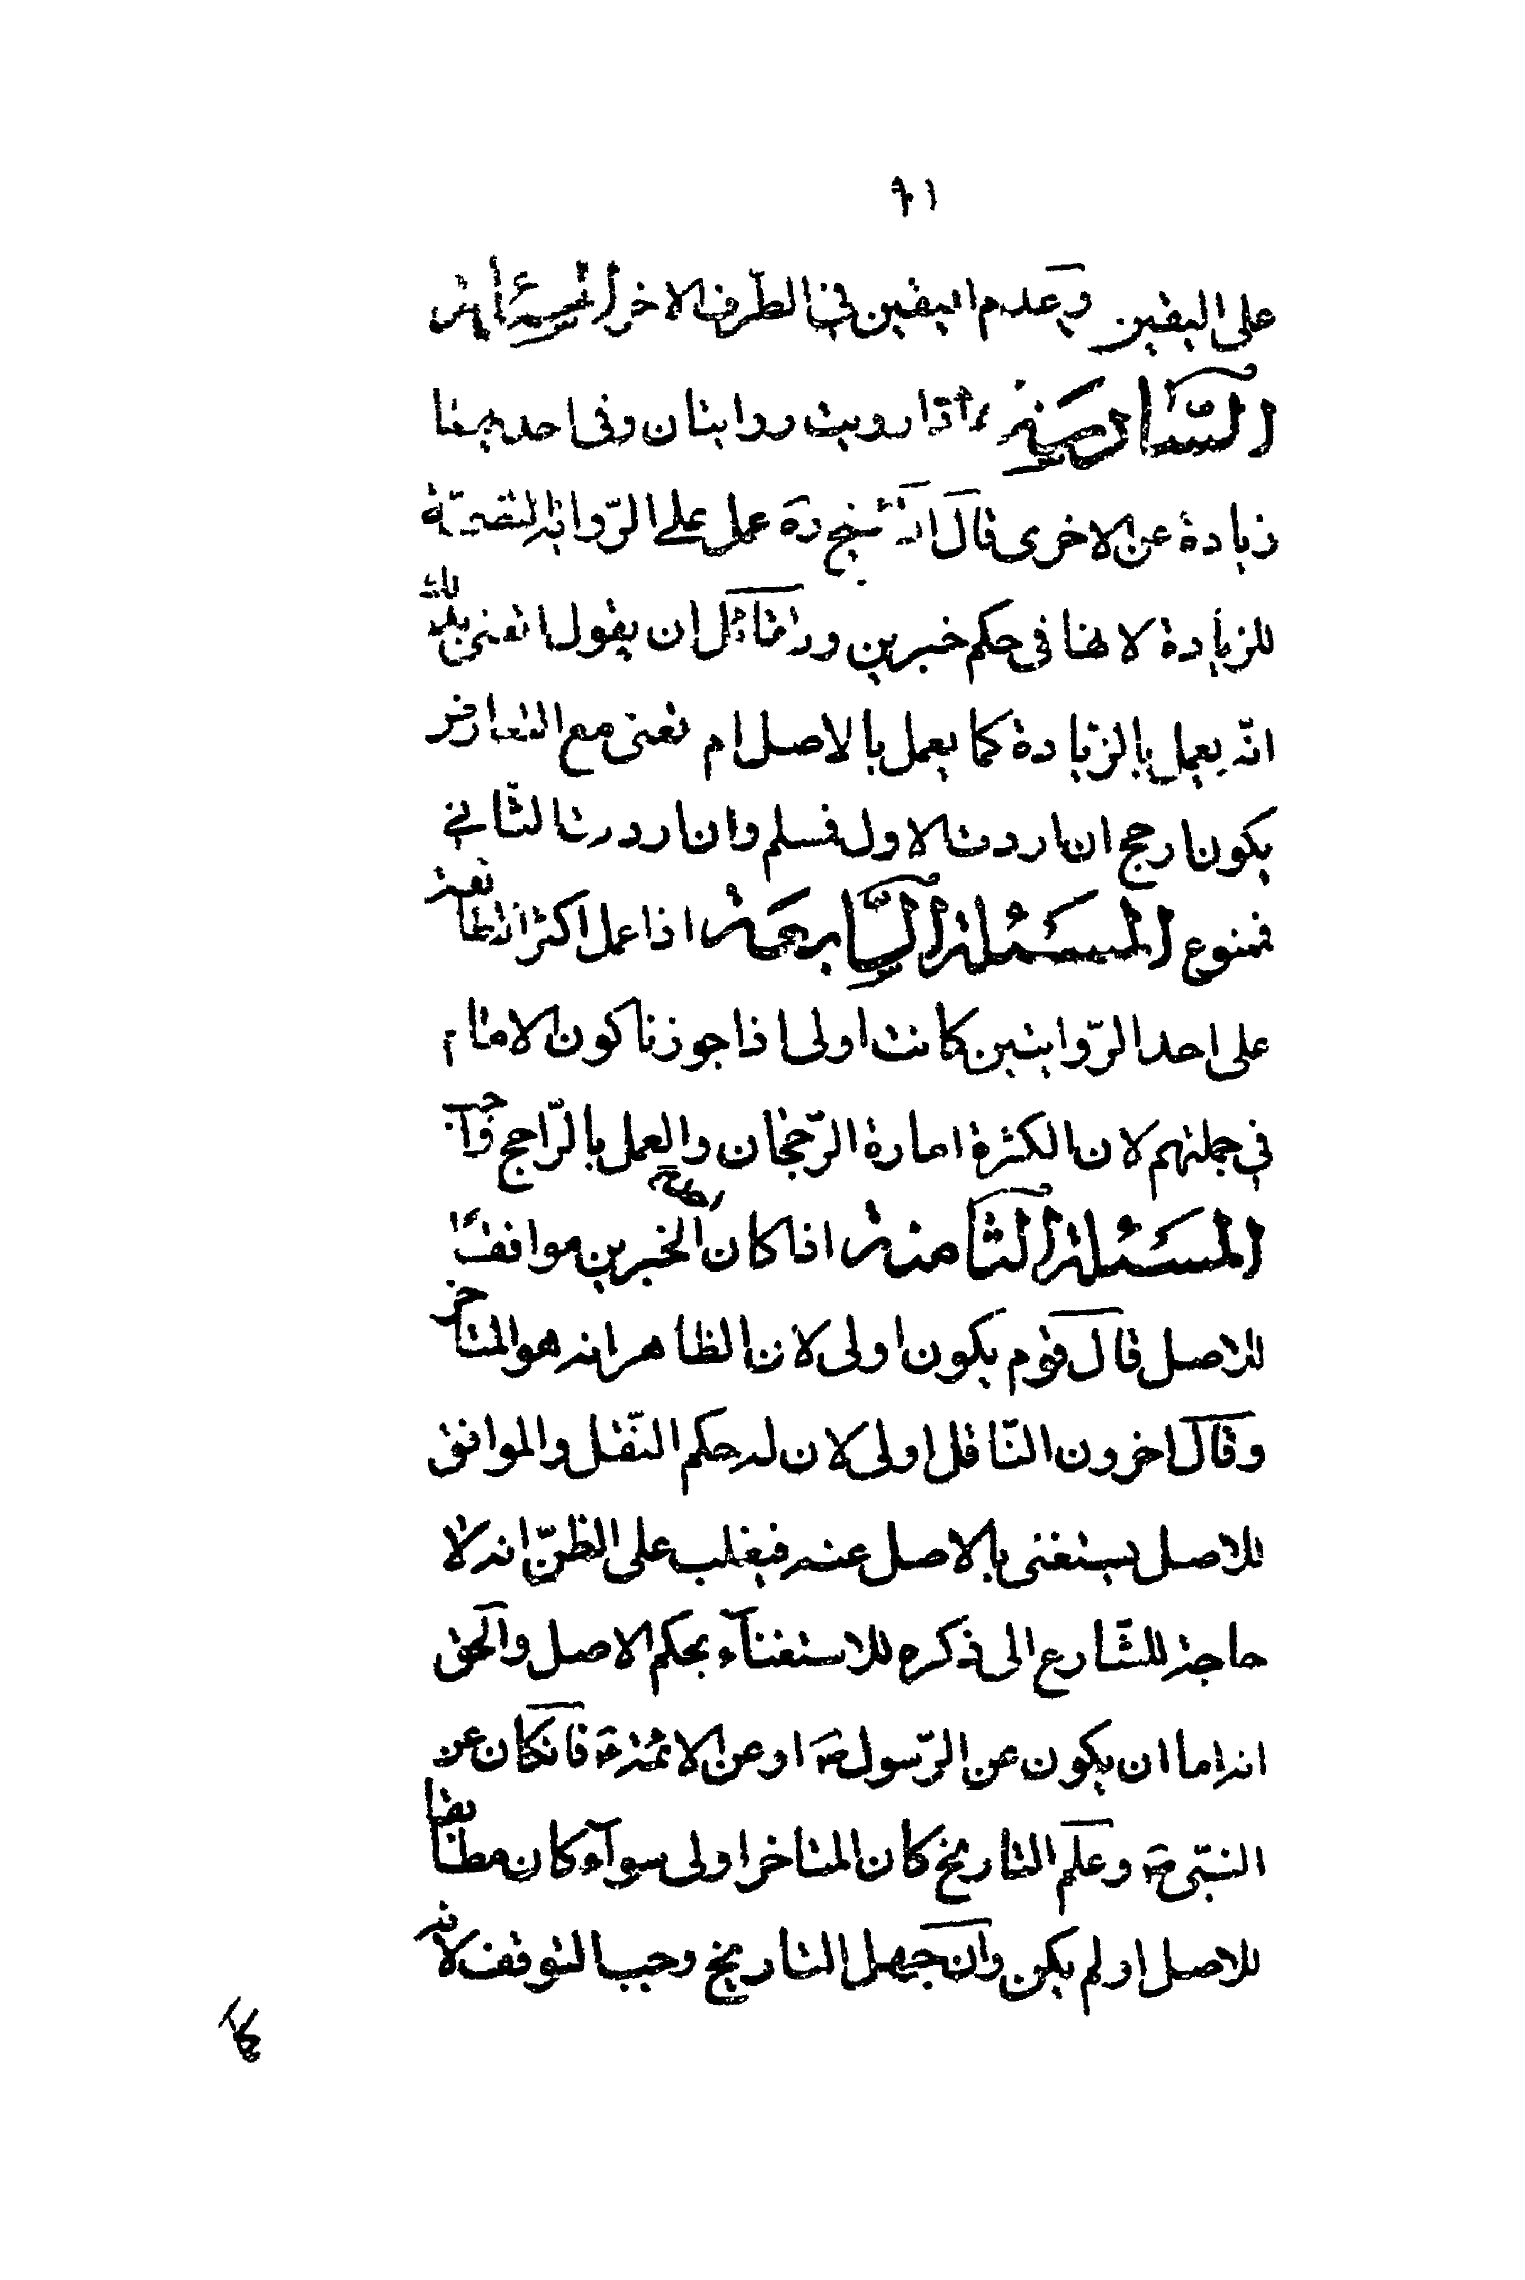 ٩١
على اليقين وعدم اليقين في الطرف الاخر المسئلة
السّادسة اذا رويت روايتان وفى احديهما
زيادة عن الاخرى قال الشيخ ره عمل على الرّواية المتضمّنة
للزيادة لانها في حكم خبرين ولقائل ان يقول اتعنى بذلك
انّه يعمل بالزيادة كما يعمل بالاصل ام تعنى مع التعارض
يكون ارجح ان اردت الاول فمسلم وان اردت الثّاني
فممنوع المسئلة السّابعة اذا عمل اكثر الطائفة
على احد الرّوايتين كانت اولى اذا جوزنا كون الامام
في جملتهم لان الكثرة امارة الرّجحان والعمل بالرّاجح واجب
المسئلة الثّامنة اذا كان احد الخبرين موافقًا
للاصل قال قوم يكون اولى لان الظاهر انه هو المتأخر
وقال اخرون النّاقل اولى لان له حكم النّقل والموافق
للاصل يستغنى بالاصل عنه فيغلب على الظنّ انه لا
حاجة للشّارع الى ذكره للاستغنآء بحكم الاصل والحق
انه اما ان يكون عن الرّسول ص او عن الائمّة ع فانكان عن
النبّى ص وعلم التاريخ كان المتاخر اولى سوآء كان مطابقا
للاصل او لم يكن وان جهل التاريخ وجب التوقف لانه
كما